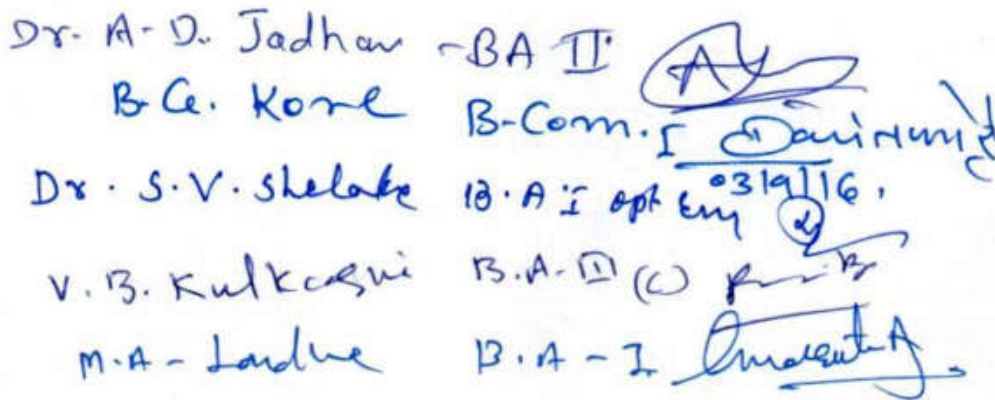 Dr. A-D. Jadhav - BA II
B.G. Kore B-Com. I
Dr. S.V. Shelake B.A I opt Eng 03/9/16,
V. B. Kulkarni B.A-III (C)
M.A - Landue B.A - I